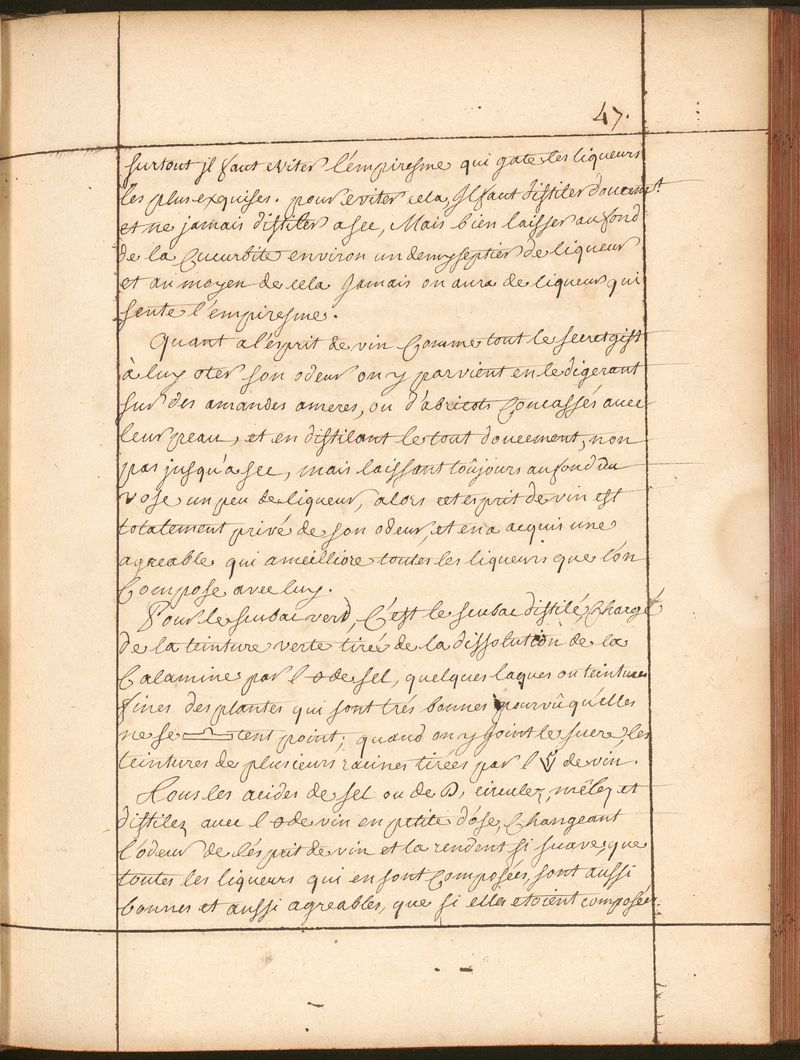 47.
surtout jl faut eviter l'empiresme qui gate les liqueurs
les plus exquises. pour eviter cela, Jl faut distiler doucemt.
et ne jamais distiler a sec, Mais bien laisser au fond
de la Cucurbite environ un demy septier de liqueur
et au moyen de cela Jamais on aura de liqueur qui
sente l'empiresme.
Quant a l'esprit de vin Comme tout le secret gist
à luy oter son odeur on y parvient en le digerant
sur des amandes ameres, ou d'abricots Concassés avec
leur peau, et en distilant le tout doucement, non
pas jusqu'a sec, mais laissant toûjours au fond du
vase un peu de liqueur, alors cet esprit de vin est
totalement privé de son odeur, et en a acquis une
agreable qui ameilliore toutes les liqueurs que l'on
Compose avec luy.
Pour le scubac verd, C'est le scubac distilé, Chargé
de la teinture verte tirée de la dissolution de la
Calamine par l de sel, quelques laques ou teintures
fines des plantes qui sont trés bonnes pourvû qu'elles
ne se tent point; quand on y Joint le sucre, les
teintures de plusieurs racines tirées par l de vin.
Tous les acides de sel ou de circulez, mêlez et
distilez avec l de vin en petite dose, Changeant
l'odeur de l'esprit de vin et la rendent si suave, que
toutes les liqueurs qui en sont Composées, sont aussi
bonnes et aussi agreables, que si elles etoient composées